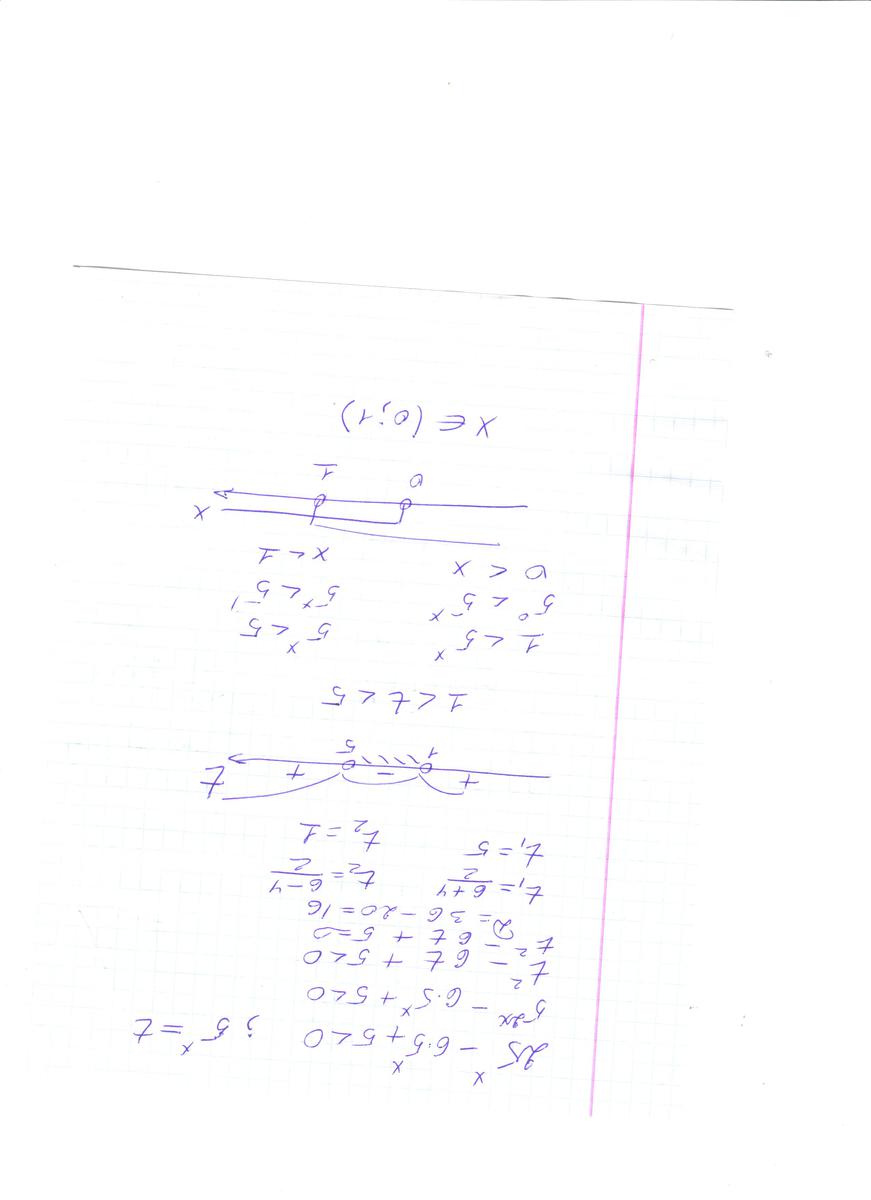 25^x - 6·5^x + 5 < 0 ; 5^x = t
5^2x - 6·5^x + 5 < 0
t² - 6t + 5 < 0
t² - 6t + 5 = 0
D = 36 - 20 = 16
t₁ = (6+4)/2 t₂ = (6-4)/2
t₁ = 5 t₂ = 1
+ - + t
1 5
1 < t < 5
1 < 5^x 5^x < 5
5^0 < 5^x 5^x < 5^1
0 < x x < 1
x
0 1
x ∈ (0;1)